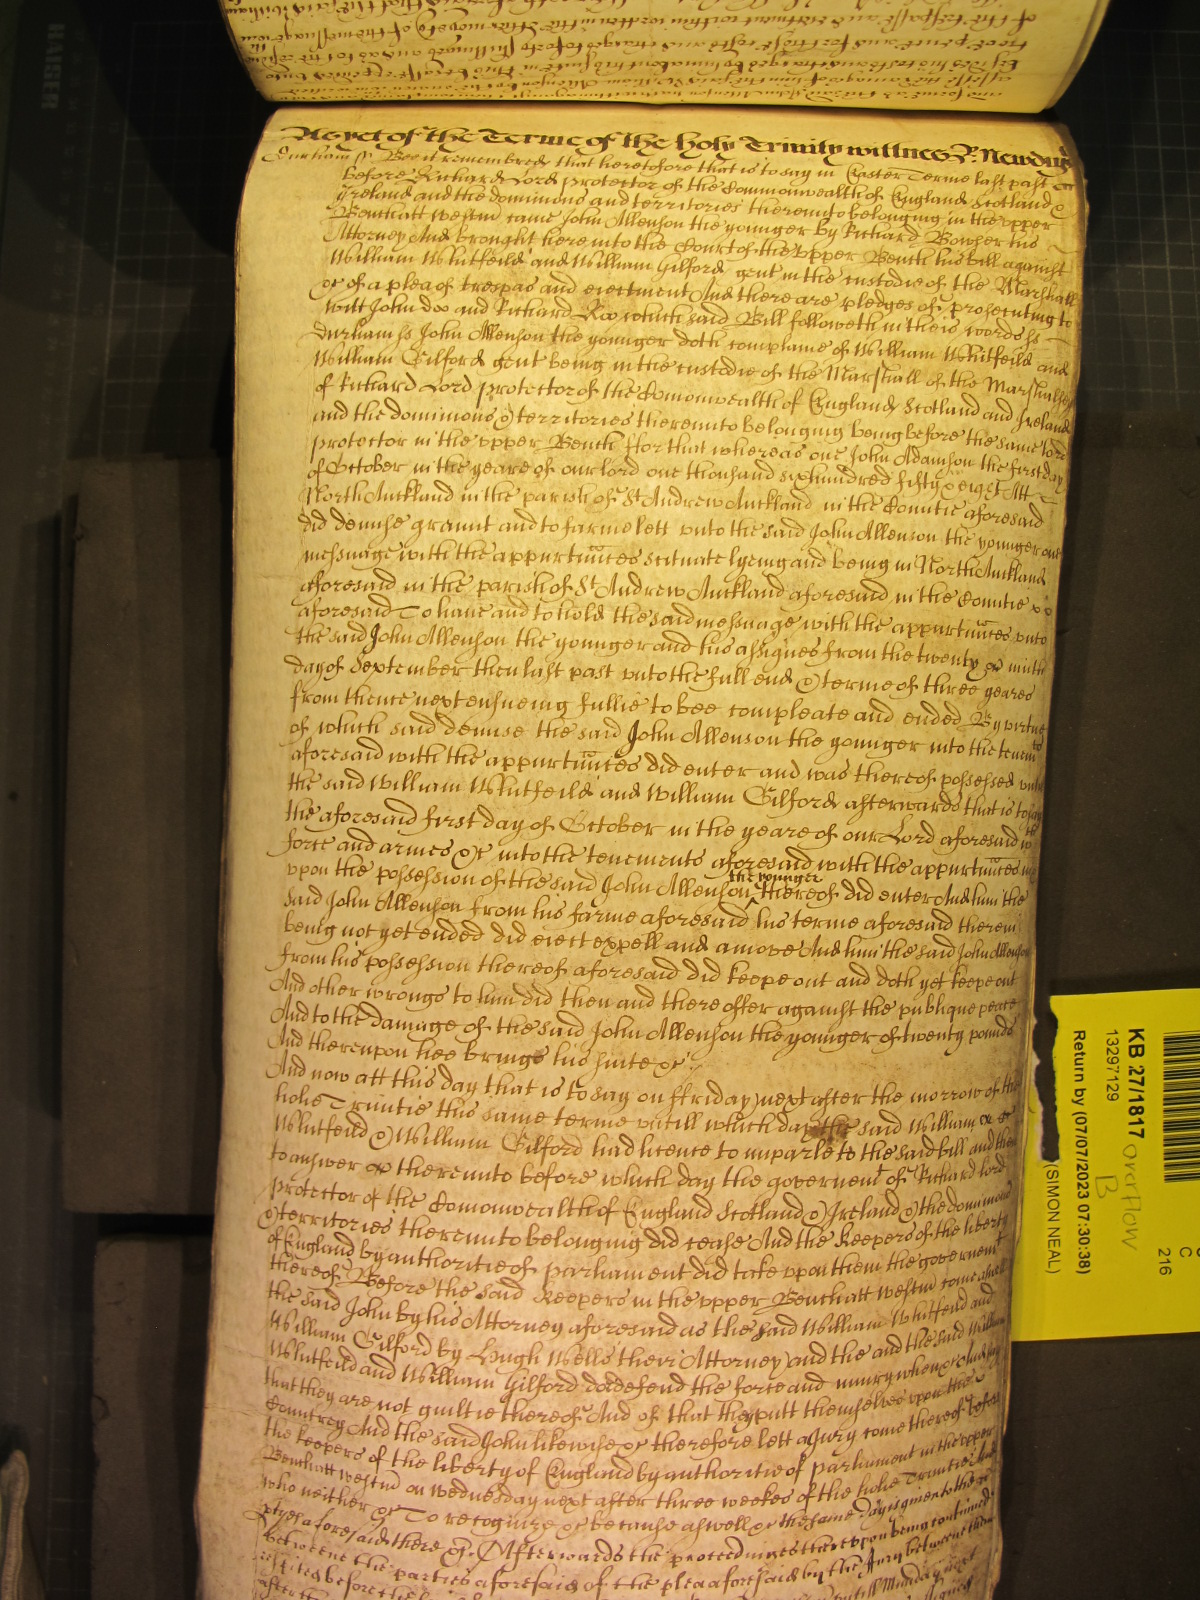 As yet of the Terme of the holy Trinity witnes R: Newdig
Durham ss Bee it remembred that heretofore that is to say in Easter Terme last past
before Richard Lord protector of the Commonwealth of England Scotland &
Ireland and the dominions and territories thereunto belonging in the vpper
Bench att Westm came John Allenson the younger by Richard Bowher his
Attorney And brought here into the Court of the vpper Bench his bill against
William Whitfeild and William Gilford gent in the custodie of the Marshall
&c of a plea of trespas and eiectment And there are pledges of prosecuting to
witt John doo and Richard Roo which said Bill followeth in theis words ss
Durham ss John Allenson the younger doth complaine of William Whitfeild and
William Gilford gent being in the custodie of the Marshall of the Marshalsey
of Richard Lord protector of the Comonwealth of England Scotland and Ireland
and the dominions & territories thereunto belonging being before the same Lord
protector in the vpper Bench ffor that whereas one John Adamson the first day
of October in the yeare of our lord one thousand six hundred fifty & eight Att
North Auckland in the parish of St Andrew Auckland in the Countie aforesaid
did demise graunt and to farme lett vnto the said John Allenson the younger one
messuage with the appurtnces scituate lyeing and being in North Auckland
aforesaid in the parish of St Andrew Auckland aforesaid in the Countie
aforesaid To haue and to hold the said messuage with the appurtnces vnto
the said John Allenson the younger and his assignes from the twenty & ninth
day of September then last past vnto the full end & terme of three yeares
from thence next ensueing fullie to bee compleate and ended By virtue
of which said demise the said John Allenson the younger into the tenemts
aforesaid with the appurtnces did enter and was thereof possessed vntill
the said William Whitfeild and William Gilford afterwards that is to say
the aforesaid first day of October in the yeare of our Lord aforesaid with
force and armes &c into the tenements aforesaid with the appurtnces in
vpon the possession of the said John Allenson the younger thereof did enter And him the
said John Allenson from his farme aforesaid his terme aforesaid therein
being not yet ended did eiect expell and amove And him the said John Allenson
from his possession thereof aforesaid did keepe out and doth yet keepe out
And other wrongs to him did then and there offer against the publique peace
And to the damage of the said John Allenson the younger of twenty pounds
And thereupon hee brings his suite &c
And now att this day that is to say on ffriday next after the morrow of the
holie Trinitie this same terme vntill which day the said William
Whitfeild & William Gilford had licence to imparle to the said bill and then
to answer &c thereunto before which day the governemt of Richard lord
protector of the Comonwealth of England Scotland & Ireland & the dominions
& territories thereunto belonging did cease And the Keepers of the liberty
of England by authoritie of parliament did take vpon them the governemt
thereof Before the said Keepers in the vpper Bench att Westm come aswell
the said John by his Attorney aforesaid as the said William Whitfeild and
William Gilford by Hugh Wells their Attorney and the and the said William
Whitfeild and William Gilford do defend the force and iniury when &c And say
that they are not guiltie thereof And of that they putt themselves vpon the
Countrey And the said John likewise &c therefore lett a Jury come thereof before
the keepers of the liberty of England by authoritie of parliament in the vpper
Bench att Westm on wednesday next after three weekes of the holie Trinitie And
who neither &c To recognize &c because aswell &c the same day is given to the
ptyes aforesaid there &c Afterwards the proceedinges thereupon being continued
betweene the parties aforesaid of the plea aforesaid by the Jury betweene them
respited before the vntill Munday next
after the
KB 27/1817
13297129
Return by (07/07/2023 07:30:38)
(SIMON NEAL)
overflow
B
C
216